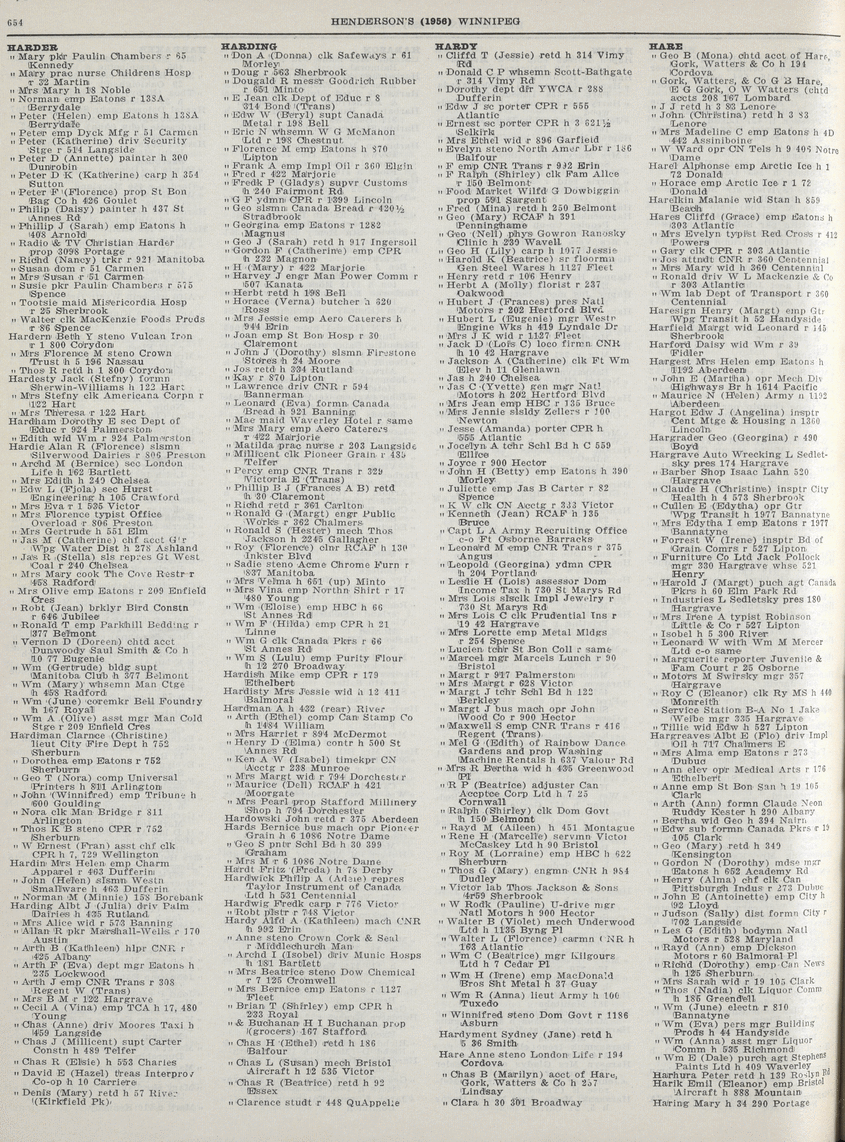 654
HENDERSON'S (1956) WINNIPEG
HARDER
" Mary pkr Paulin Chambers r 65
Kennedy
" Mary prac nurse Childrens Hosp
r 32 Martin
" Mrs Mary h 18 Noble
" Norman emp Eatons r 138A
Berrydale
" Peter (Helen) emp Eatons h 138A
Berrydale
" Peter emp Dyck Mfg r 51 Carmen
" Peter (Katherine) driv Security
Stge r 514 Langside
" Peter D (Annette) painter h 300
Dunrobin
" Peter D K (Katherine) carp h 354
Sutton
" Peter F (Florence) prop St Bon
Bag Co h 426 Goulet
" Philip (Daisy) painter h 437 St
Annes Rd
" Phillip J (Sarah) emp Eatons h
408 Arnold
" Radio & TV Christian Harder
prop 3098 Portage
" Richd (Nancy) trkr r 921 Manitoba
" Susan dom r 51 Carmen
" Mrs Susan r 51 Carmen
" Susie pkr Paulin Chambers r 575
Spence
" Tootsie maid Misericordia Hosp
r 25 Sherbrook
" Walter clk MacKenzie Foods Prods
r 86 Spence
Hardern Beth Y steno Vulcan Iron
r 1 800 Corydon
" Mrs Florence M steno Crown
Trust h 5 196 Nassau
" Thos R retd h 1 800 Corydon
Hardesty Jack (Stefny) formn
Sherwin-Williams h 122 Hart
" Mrs Stefny clk Americana Corpn r
122 Hart
" Mrs Theresa r 122 Hart
Hardham Dorothy E sec Dept of
Educ r 924 Palmerston
" Edith wid Wm r 924 Palmerston
Hardie Alan R (Florence) slsmn
Silverwood Dairies r 806 Preston
" Archd M (Bernice) sec London
Life h 162 Bartlett
" Mrs Edith h 249 Chelsea
" Edw L (Fjola) sec Hurst
Engineering h 105 Crawford
" Mrs Eva r 1 535 Victor
" Mrs Florence typist Office
Overload r 806 Preston
" Mrs Gertrude h 551 Elm
" Jas M (Catherine) chf acct G'r
Wpg Water Dist h 278 Ashland
" Jas R (Stella) sls repres Gt West
Coal r 240 Chelsea
" Mrs Mary cook The Cove Restr r
458 Radford
" Mrs Olive emp Eatons r 209 Enfield
Cres
" Robt (Jean) brklyr Bird Constn
r 646 Jubilee
" Ronald T emp Parkhill Bedding r
377 Belmont
" Vernon D (Doreen) chtd acct
Dunwoody Saul Smith & Co h
10 77 Eugenie
" Wm (Gertrude) bldg supt
Manitoba Club h 377 Belmont
" Wm (Mary) whsemn Man Ctge
h 458 Radford
" Wm (June) coremkr Bell Foundry
h 167 Royal
" Wm A (Olive) asst mgr Man Cold
Stge r 209 Enfield Cres
Hardiman Clarnce (Christine)
lieut City Fire Dept h 752
Sherburn
" Dorothea emp Eatons r 752
Sherburn
" Geo T (Nora) comp Universal
Printers h 811 Arlington
" John (Winnifred) emp Tribune h
600 Goulding
" Nora clk Man Bridge r 811
Arlington
" Thos K B steno CPR r 752
Sherburn
" W Ernest (Fran) asst chf clk
CPR h 7, 729 Wellington
Hardin Mrs Helen emp Charm
Apparel r 463 Dufferin
" John (Helen) slsmn Westn
Smallware h 463 Dufferin
" Norman M (Minnie) 158 Borebank
Harding Albt J (Julia) driv Palm
Dairies h 435 Rutland
" Mrs Alice wid r 573 Banning
" Allan R pkr Marshall-Wells r 170
Austin
" Arth B (Kathleen) hlpr CNR r
425 Albany
" Arth F (Eva) dept mgr Eatons h
235 Lockwood
" Arth J emp CNR Trans r 308
Regent W (Trans)
" Mrs B M r 122 Hargrave
" Cecil A (Vina) emp TCA h 17, 480
Young
" Chas (Anne) driv Moores Taxi h
459 Langside
" Chas J (Millicent) supt Carter
Constn h 489 Telfer
" Chas R (Elsie) h 553 Charles
" David E (Hazel) treas Interprov
Co-op h 10 Carriere
" Denis (Mary) retd h 57 River
(Kirkfield Pk)
HARDING
" Don A (Donna) clk Safeways r 61
Morley
" Doug r 563 Sherbrook
" Dougald R messr Goodrich Rubber
r 651 Minto
" E Jean clk Dept of Educ r 8
314 Bond (Trans)
" Edw W (Beryl) supt Canada
Metal r 198 Bell
" Eric N whsemn W G McManon
Ltd r 198 Chestnut
" Florence M emp Eatons h 870
Lipton
" Frank A emp Impl Oil r 360 Elgin
" Fred r 422 Marjorie
" Fredk P (Gladys) supvr Customs
h 249 Fairmont Rd
" G F ydmn CPR r 1399 Lincoln
" Geo slsmn Canada Bread r 420½
Stradbrook
" Georgina emp Eatons r 1282
Magnus
" Geo J (Sarah) retd h 917 Ingersoll
" Gordon F (Catherine) emp CPR
h 232 Magnon
" H (Mary) r 422 Marjorie
" Harvey J engr Man Power Comm r
507 Kanata
" Herbt retd h 198 Bell
" Horace (Verna) butcher h 620
Ross
" Mrs Jessie emp Aero Caterers h
944 Erin
" Joan emp St Bon Hosp r 30
Claremont
" John J (Dorothy) slsmn Firestone
Stores h 24 Moore
" Jos retd h 334 Rutland
" Kay r 870 Lipton
" Lawrence driv CNR r 594
Bannerman
" Leonard (Eva) formn Canada
Bread h 921 Banning
" Mae maid Waverley Hotel r same
" Mrs Mary emp Aero Caterers
r 422 Marjorie
" Matilda prac nurse r 203 Langside
" Millicent clk Pioneer Grain r 485
Telfer
" Percy emp CNR Trans r 329
Victoria E (Trans)
" Phillip B J (Frances A B) retd
h 30 Claremont
" Richd retd r 361 Carlton
" Ronald G (Margt) engr Public
Works r 362 Chalmers
" Ronald S (Hester) mech Thos
Jackson h 2245 Gallagher
" Roy (Florence) clnr RCAF h 130
Inkster Blvd
" Sadie steno Acme Chrome Furn r
837 Manitoba
" Mrs Velma h 651 (up) Minto
" Mrs Vina emp Northn Shirt r 17
480 Young
" Wm (Eloise) emp HBC h 66
St Annes Rd
" Wm F (Hilda) emp CPR h 21
Linne
" Wm G clk Canada Pkrs r 66
St Annes Rd
" Wm S (Lulu) emp Purity Flour
h 12 270 Broadway
Hardish Mike emp CPR r 179
Ethelbert
Hardisty Mrs Jessie wid h 12 411
Balmoral
Hardman A h 432 (rear) River
" Arth (Ethel) comp Can Stamp Co
h 1484 William
" Mrs Harriet r 894 McDermot
" Henry D (Elma) contr h 500 St
Annes Rd
" Ken A W (Isabel) timekpr CN
Acctg r 238 Munroe
" Mrs Margt wid r 794 Dorchester
" Maurice (Dell) RCAF h 421
Moorgate
" Mrs Pearl prop Stafford Millinery
Shop h 794 Dorchester
Hardowski John retd r 375 Aberdeen
Hards Bernice bus mach opr Pioneer
Grain h 6 1086 Notre Dame
" Geo S pntr Schl Bd h 30 399
Graham
" Mrs M r 6 1086 Notre Dame
Hardt Fritz (Freda) h 78 Derby
Hardwick Philip A (Adae) repres
Taylor Instrument of Canada
Ltd h 531 Centennial
Hardwig Fredk carp r 776 Victor
" Robt plstr r 748 Victor
Hardy Alfd A (Kathleen) mach CNR
h 992 Erin
" Anne steno Crown Cork & Seal
r Middlechurch Man
" Archd I (Isobel) driv Munic Hosps
h 181 Bartlett
" Mrs Beatrice steno Dow Chemical
r 7 125 Cromwell
" Mrs Bernice emp Eatons r 1127
Fleet
" Brian T (Shirley) emp CPR h
233 Royal
" & Buchanan H I Buchanan prop
(grocers) 167 Stafford
" Chas H (Ethel) retd h 186
Balfour
" Chas L (Susan) mech Bristol
Aircraft h 12 535 Victor
" Chas R (Beatrice) retd h 92
Essex
" Clarence studt r 448 QuAppelle
HARDY
" Cliffd T (Jessie) retd h 314 Vimy
Rd
" Donald C P whsemn Scott-Bathgate
r 314 Vimy Rd
" Dorothy dept dfr YWCA r 288
Dufferin
" Edw J sc porter CPR r 555
Atlantic
" Ernest sc porter CPR h 3 621½
Selkirk
" Mrs Ethel wid r 896 Garfield
" Evelyn steno North Amer Lbr r 186
Balfour
" F emp CNR Trans r 992 Erin
" F Ralph (Shirley) clk Fam Alice
r 150 Belmont
" Food Market Wilfd G Dowbiggin
prop 591 Sargent
" Fred (Mina) retd h 250 Belmont
" Geo (Mary) RCAF h 391
Penninghame
" Geo (Nell) phys Gowron Ranosky
Clinic h 239 Wavell
" Geo H (Lily) carp h 1077 Jessie
" Harold K (Beatrice) sr floormn
Gen Steel Wares h 1127 Fleet
" Henry retd r 106 Henry
" Herbt A (Molly) florist r 237
Oakwood
" Hubert J (Frances) pres Natl
Motors r 202 Hertford Blvd
" Hubert L (Eugenie) mgr Westn
Engine Wks h 419 Lyndale Dr
" Mrs J K wid r 1127 Fleet
" Jack D (Lois C) loco firmn CNR
h 10 42 Hargrave
" Jackson A (Catherine) clk Ft Wm
Elev h 11 Glenlawn
" Jas h 240 Chelsea
" Jas C (Yvette) gen mgr Natl
Motors h 202 Hertford Blvd
" Mrs Jean emp HBC r 135 Bruce
" Mrs Jennie slsldy Zellers r 100
Newton
" Jesse (Amanda) porter CPR h
555 Atlantic
" Jocelyn A tchr Schl Bd h C 559
Ellice
" Joyce r 900 Hector
" John H (Betty) emp Eatons h 390
Morley
" Juliette emp Jas B Carter r 82
Spence
" K W clk CN Acctg r 333 Victor
" Kenneth (Jean) RCAF h 135
Bruce
" Capt L A Army Recruiting Office
c-o Ft Osborne Barracks
" Leonard M emp CNR Trans r 375
Angus
" Leopold (Georgina) ydmn CPR
h 204 Portland
" Leslie H (Lois) assessor Dom
Income Tax h 730 St Marys Rd
" Mrs Lois slsclk Impl Jewelry r
730 St Marys Rd
" Mrs Lois C clk Prudential Ins r
19 42 Hargrave
" Mrs Lorette emp Metal Mldgs
r 254 Spence
" Lucien tchr St Bon Coll r same
" Marcel mgr Marcels Lunch r 90
Bristol
" Margt r 917 Palmerston
" Mrs Margt r 628 Victor
" Margt J tchr Schl Bd h 122
Berkley
" Margt J bus mach opr John
Wood Co r 900 Hector
" Maxwell S emp CNR Trans r 416
Regent (Trans)
" Mel G (Edith) of Rainbow Dance
Gardens and prop Washing
Machine Rentals h 637 Valour Rd
" Mrs R Bertha wid h 435 Greenwood
Pl
" R P (Beatrice) adjuster Can
Accptce Corp Ltd h 7 25
Cornwall
" Ralph (Shirley) clk Dom Govt
h 150 Belmont
" Rayd M (Aileen) h 451 Montague
" Rene H (Marcelle) servmn Victor
McCaskey Ltd h 90 Bristol
" Roy M (Lorraine) emp HBC h 622
Sherburn
" Thos G (Mary) engmn CNR h 984
Dudley
" Victor lab Thos Jackson & Sons
4r59 Sherbrook
" W Rodk (Pauline) U-drive mgr
Natl Motors h 900 Hector
" Walter B (Violet) mech Underwood
Ltd h 1135 Byng Pl
" Walter L (Florence) carmn CNR h
163 Atlantic
" Wm C (Beatrice) mgr Kilgours
Ltd h 7 Cedar Pl
" Wm H (Irene) emp MacDonald
Bros Sht Metal h 37 Guay
" Wm R (Anna) lieut Army h 106
Tuxedo
" Winnifred steno Dom Govt r 1186
Asburn
Hardyment Sydney (Jane) retd h
5 36 Smith
Hare Anne steno London Life r 194
Cordova
" Chas B (Marilyn) acct of Hare,
Gork, Watters & Co h 257
Lindsay
" Clara h 30 301 Broadway
HARE
" Geo B (Mona) chtd acct of Hare,
Gork, Watters & Co h 194
Cordova
" Gork, Watters, & Co G B Hare,
E G Gork, O W Watters (chtd
accts 208 167 Lombard
" J J retd h 3 83 Lenore
" John (Christina) retd h 3 83
Lenore
" Mrs Madeline C emp Eatons h 4D
442 Assiniboine
" W Ward opr CN Tels h 9 406 Notre
Dame
Harel Alphonse emp Arctic Ice h 1
72 Donald
" Horace emp Arctic Ice r 1 72
Donald
Harelkin Malanie wid Stan h 859
Beach
Hares Cliffd (Grace) emp Eatons h
303 Atlantic
" Mrs Evelyn typist Red Cross r 412
Powers
" Gary clk CPR r 303 Atlantic
" Jos attndt CNR r 360 Centennial
" Mrs Mary wid h 360 Centennial
" Ronald driv W L Mackenzie & Co
r 303 Atlantic
" Wm lab Dept of Transport r 360
Centennial
Haresign Henry (Margt) emp Gtr
Wpg Transit h 52 Handyside
Harfield Margt wid Leonard r 145
Sherbrook
Harford Daisy wid Wm r 39
Fidler
Hargest Mrs Helen emp Eatons h
1192 Aberdeen
" John E (Martha) opr Mech Div
Highways Br h 1614 Pacific
" Maurice N (Helen) Army h 1192
Aberdeen
Hargot Edw J (Angelina) insptr
Cent Mtge & Housing h 1360
Lincoln
Hargrader Geo (Georgina) r 490
Boyd
Hargrave Auto Wrecking L Sedlet-
sky pres 174 Hargrave
" Barber Shop Isaac Lahn 520
Hargrave
" Claude H (Christine) insptr City
Health h 4 573 Sherbrook
" Cullen E (Edytha) opr Gtr
Wpg Transit h 1977 Bannatyne
" Mrs Edytha I emp Eatons r 1977
Bannatyne
" Forrest W (Irene) insptr Bd of
Grain Comrs r 527 Lipton
" Furniture Co Ltd Jack Pollock
mgr 330 Hargrave whse 521
Henry
" Harold J (Margt) puch agt Canada
Pkrs h 60 Elm Park Rd
" Industries L Sedletsky pres 180
Hargrave
" Mrs Irene A typist Robinson
Little & Co r 527 Lipton
" Isobel h 5 300 River
" Leonard W with Wm M Mercer
Ltd c-o same
" Marguerite reporter Juvenile &
Fam Court r 25 Osborne
" Motors M Swirsky mgr 357
Hargrave
" Roy C (Eleanor) clk Ry MS h 440
Monreith
" Service Station B-A No 1 Jake
Weibe mgr 335 Hargrave
" Tillie wid Edw h 527 Lipton
Hargreaves Albt E (Flo) driv Impl
Oil h 717 Chalmers E
" Mrs Alma emp Eatons r 273
Dubuc
" Ann elev opr Medical Arts r 176
Ethelbert
" Anne emp St Bon San h 19 105
Clark
" Arth (Ann) formn Claude Neon
Ruddy Kester h 290 Albany
" Bertha wid Geo h 394 Nairn
" Edw sub formn Canada Pkrs r 19
105 Clark
" Geo (Mary) retd h 349
Kensington
" Gordon N (Dorothy) mdse mgr
Eatons h 652 Academy Rd
" Henry (Alma) chf clk Can
Pittsburgh Indus r 273 Dubuc
" John E (Antoinette) emp City h
92 Lloyd
" Judson (Sally) dist formn City r
702 Langside
" Les G (Edith) bodymn Natl
Motors r 528 Maryland
" Rayd (Ann) emp Dickson
Motors r 60 Balmoral Pl
" Richd (Dorothy) emp Can News
h 125 Sherburn
" Mrs Sarah wid r 19 105 Clark
" Thos (Nadia) clk Liquor Comm
h 186 Greendell
" Wm (June) electn r 810
Bannatyne
" Wm (Eva) pers mgr Building
Prods h 44 Handyside
" Wm (Anna) asst mgr Liquor
Comm h 535 Richmond
" Wm E (Dale) purch agt Stephens
Paints Ltd h 409 Waverley
Harhura Peter retd h 139 Roslyn Rd
Harik Emil (Eleanor) emp Bristol
Aircraft h 888 Mountain
Haring Mary h 34 290 Portage